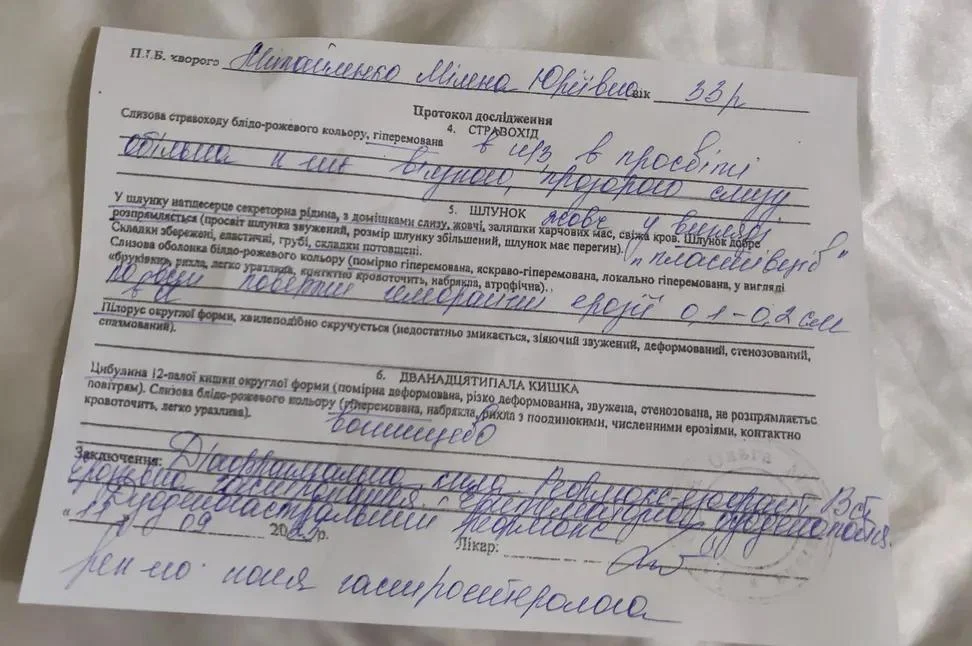 П.І.Б. хворого Міхайленко Мілена Юріївна вік 33р
Протокол дослідження
4. СТРАВОХІД
Слизова стравоходу блідо-рожевого кольору, гіперемована в н/з в просвіті
обільна к-ть в'язкого, прозорого слизу
5. ШЛУНОК
У шлунку натщесерце секреторна рідина, з домішками слизу, жовчі, залишки харчових мас, свіжа кров. Шлунок добре
жовч у вигляді
розпрямляється (просвіт шлунка звужений, розмір шлунку збільшений, шлунок має перегин).
Складки збережені, еластичні, грубі, складки потовщені.
"пластівців"
Слизова оболонка блідо-рожевого кольору (помірно гіперемована, яскраво-гіперемована, локально гіперемована, у вигляді
«бруківки», рихла, легко уразлива, контктно кровоточить, набрякла, атрофічна).
по всій поверхні геморагічні ерозії 0,1-0,2 см
в д
Пілорус округлої форми, хвилеподібно скручується (недостатньо змикається, зіяючий звужений, деформований, стенозований,
спазмований).
6. ДВАНАДЦЯТИПАЛА КИШКА
Цибулина 12-палої кишки округлої форми (помірна деформована, різко деформованна, звужена, стенозована, не розпрямляєтьс
повітрям). Слизова блідо-рожевого кольору (гіперемована, набрякла, рихла з поодинокими, численними ерозіями, контактно
кровоточить, легко уразлива).
вогнищево
Заключення: Діафрагмальна кила. Рефлюкс-езофагіт В ст.
Ерозивна гастропатія. Еритематозна дуоденопатія.
Дуоденогастральний рефлюкс
09 20 р.
Лікар:
Ольга
рек-но: кон-я гастроентеролога